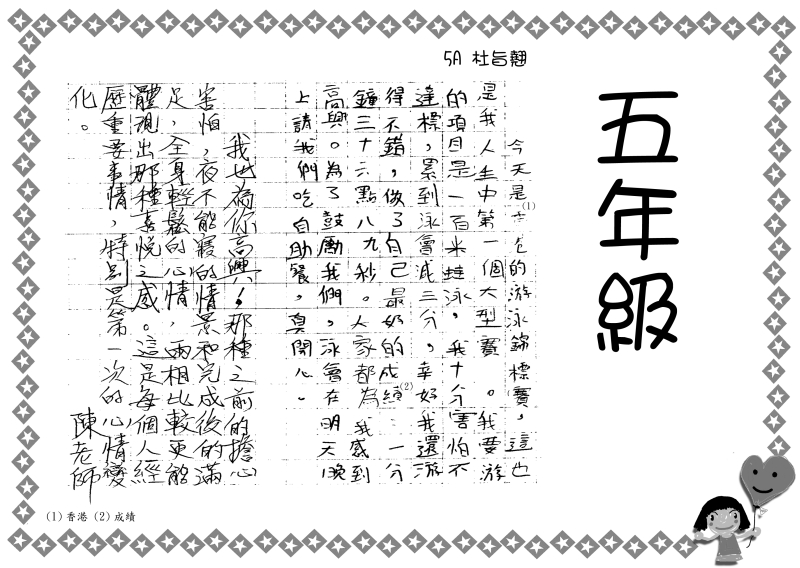 五年級
5A 杜旨翹
今天是的游泳錦標賽，這也
(1)
是我人生中第一個大型賽。我要游
的項目是一百米蛙泳，我十分害怕不
達標，累到泳會減三分，幸好我還游
得不錯，做了自己最好的成績：一分
(2)
鐘三十六點八九秒。人家都為我感到
高興。為了鼓勵我們，泳會在明天晚
上請我們吃自助餐，真開心。
我也為你高興！那種之前的擔心
害怕，夜不能寢的情景和完成後的滿
足，全身輕鬆的心情，兩相比較更能
體現出那種喜悅之感。這是每個人經
歷重要事情，特別是第一次的心情變
化。
陳老師
(1) 香港 (2) 成績